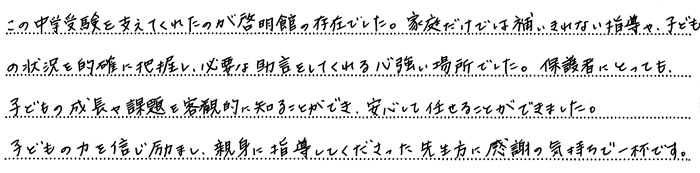 この中学受験を支えてくれたのが啓明館の存在でした。家庭だけでは補いきれない指導や、子ども
の状況を的確に把握し、必要な助言をしてくれる心強い場所でした。保護者にとっても、
子どもの成長や課題を客観的に知ることができ、安心して任せることができました。
子どもの力を信じ励まし、親身に指導してくださった先生方に感謝の気持ちで一杯です。